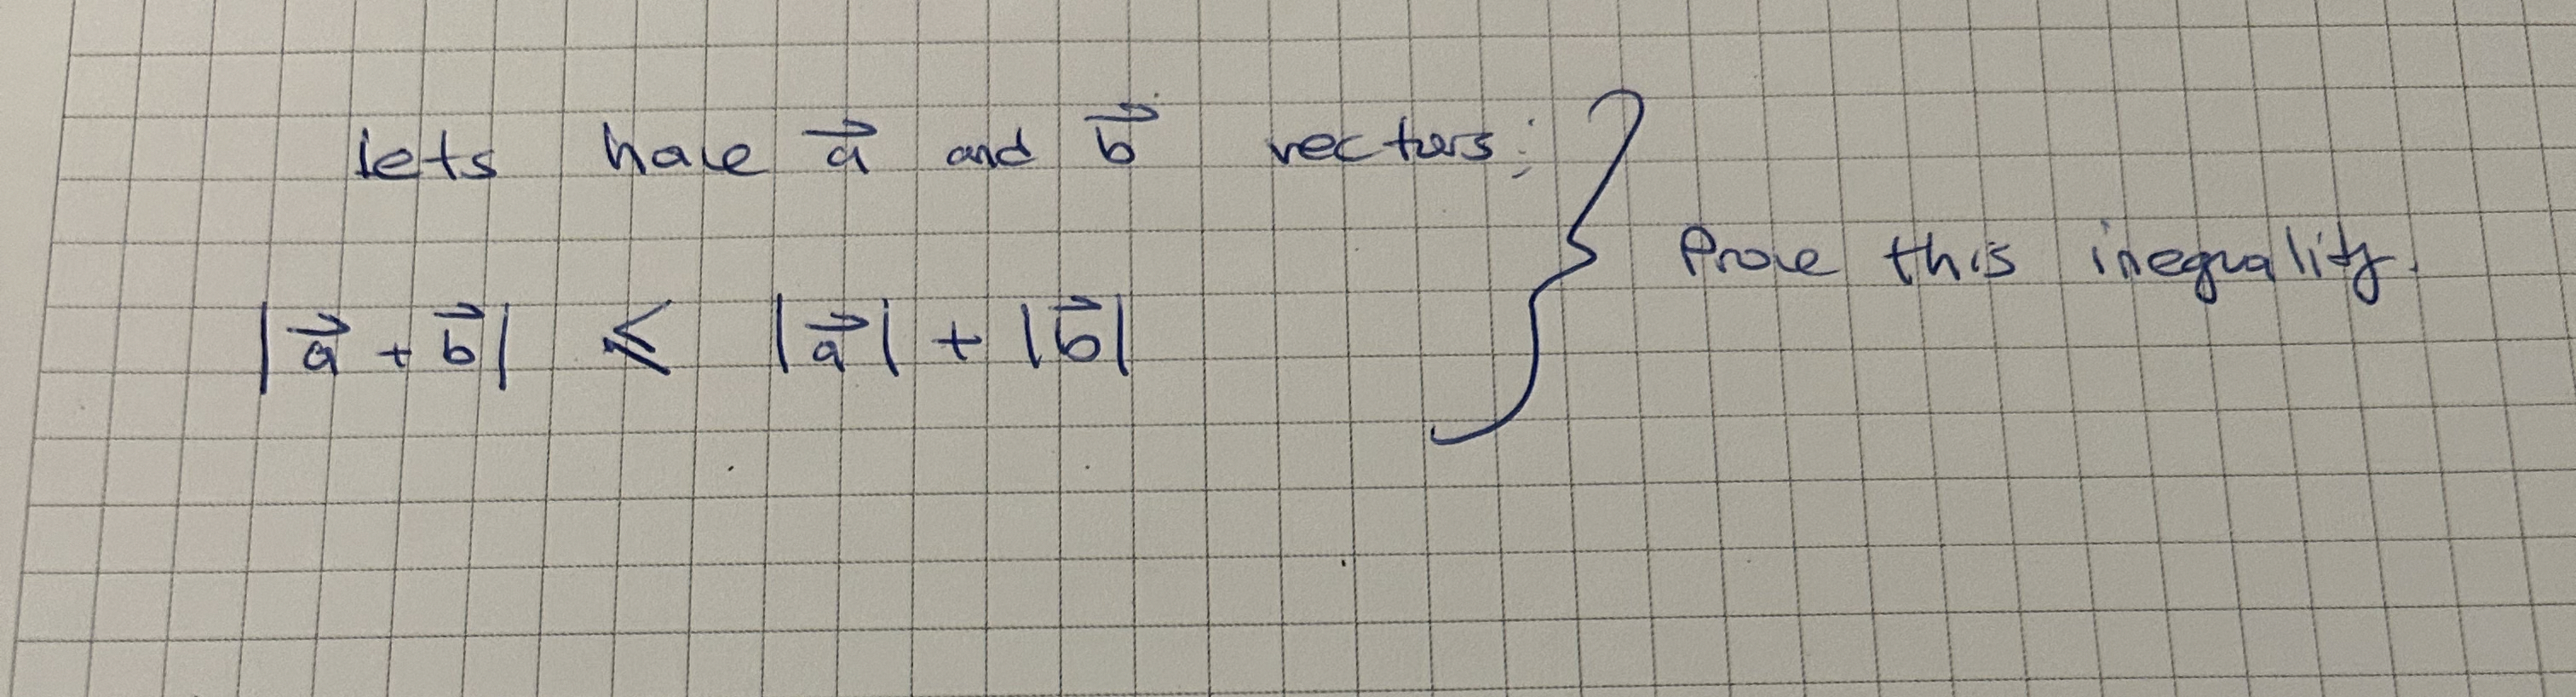 lets have a⃗ and b⃗ vectors;
|a⃗ + b⃗| ≤ |a⃗| + |b⃗|
Prove this inequality.